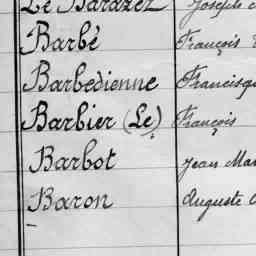 Le Barazer Joseph
Barbé François
Barbedienne Francisq
Barbier (Le) François
Barbot Jean Mar
Baron Auguste